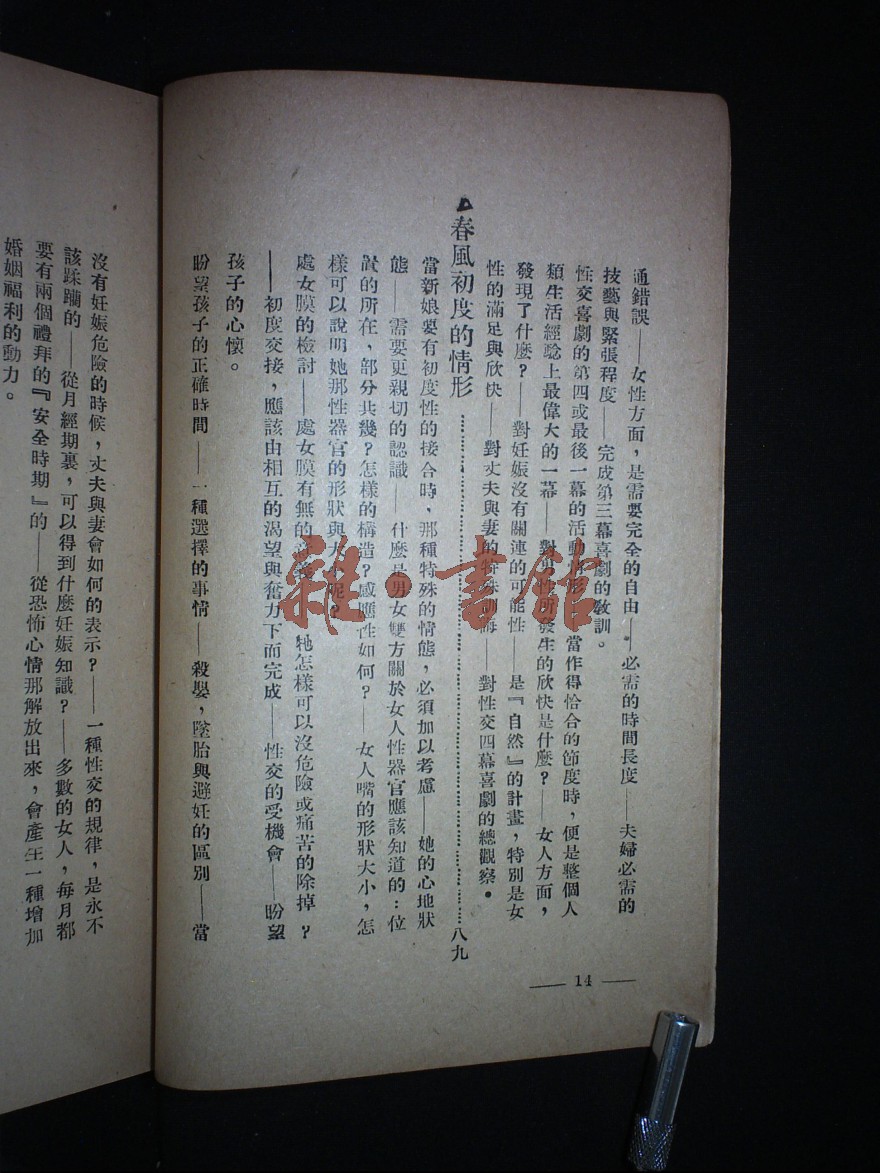 通錯誤——女性方面，是需要完全的自由——必需的時間長度——夫婦必需的
技藝與緊張程度——完成第三幕喜劇的教訓。
性交喜劇的第四或最後一幕的活動情形——當作得恰合的節度時，便是整個人
類生活經驗上最偉大的一幕——對男性所發生的欣快是什麼？——女人方面，
發現了什麼？——對妊娠沒有關連的可能性——是『自然』的計畫，特別是女
性的滿足與欣快——對丈夫與妻的特殊訓誨——對性交四幕喜劇的總觀察。
春風初度的情形……八九
當新娘要有初度性的接合時，那種特殊的情態，必須加以考慮——她的心地狀
態——需要更親切的認識——什麼是男女雙方關於女人性器官應該知道的：位
置的所在，部分共幾？怎樣的構造？感應性如何？——女人嘴的形狀大小，怎
樣可以說明她那性器官的形狀與大小呢？
處女膜的檢討——處女膜有無的——牠怎樣可以沒危險或痛苦的除掉？
——初度交接，應該由相互的渴望與奮力下而完成——性交的受機會——盼望
孩子的心懷。
盼望孩子的正確時間——一種選擇的事情——殺嬰，墜胎與避妊的區別——當
—14—
沒有妊娠危險的時候，丈夫與妻會如何的表示？——一種性交的規律，是永不
該蹂躪的——從月經期裏，可以得到什麼妊娠知識？——多數的女人，每月都
要有兩個禮拜的『安全時期』的——從恐怖心情那解放出來，會產生一種增加
婚姻福利的動力。
雜·書館